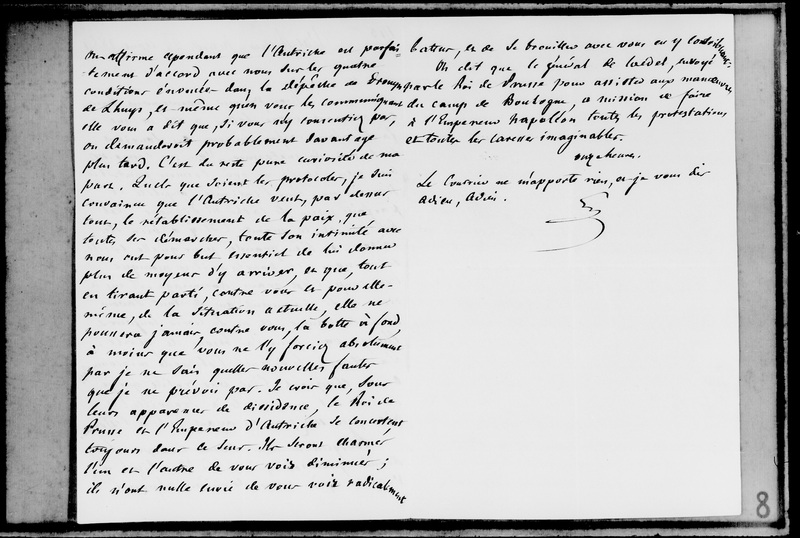 m'affirme cependant que l'Autriche est parfai-
tement d'accord avec nous sur les quatre
conditions énoncées dans la dépêche de Drouyn
de Lhuys, et même qu'en vous les communiquant
elle vous a dit que, si vous n'y consentiez pas,
on demanderoit probablement davantage
plus tard. C'est du reste pure curiosité de ma
part. Quels que soient les protocoles, je suis
convaincu que l'Autriche veut, par dessus
tout, le rétablissement de la paix, que
toutes ses démarches, toute son intimité avec
nous ont pour but essentiel de lui donner
plus de moyens d'y arriver, et que, tout
en tirant parti, contre vous et pour elle-
même, de la situation actuelle, elle ne
poussera jamais, contre vous, la botte à fond,
à moins que vous ne l'y forciez absolument
par je ne sais quelles nouvelles fautes
que je ne prévois pas. Je crois que, sous
leurs apparences de dissidence, le Roi de
Prusse et l'Empereur d'Autriche se concertent
toujours dans ce sens. Ils seront charmés
l'un et l'autre de vous voir diminués ;
ils n'ont nulle envie de vous voir radicalement
battus, et de se brouiller avec vous en y contribuant.
On dit que le général de
envoyé
par le Roi de Prusse pour assister aux manœuvres
du camp de Boulogne, a mission de faire
à l'Empereur Napoléon toutes les protestations
et toutes les caresses imaginables.
onze heures.
Le Courrier ne m'apporte rien, et je vous dis
adieu, adieu.
8